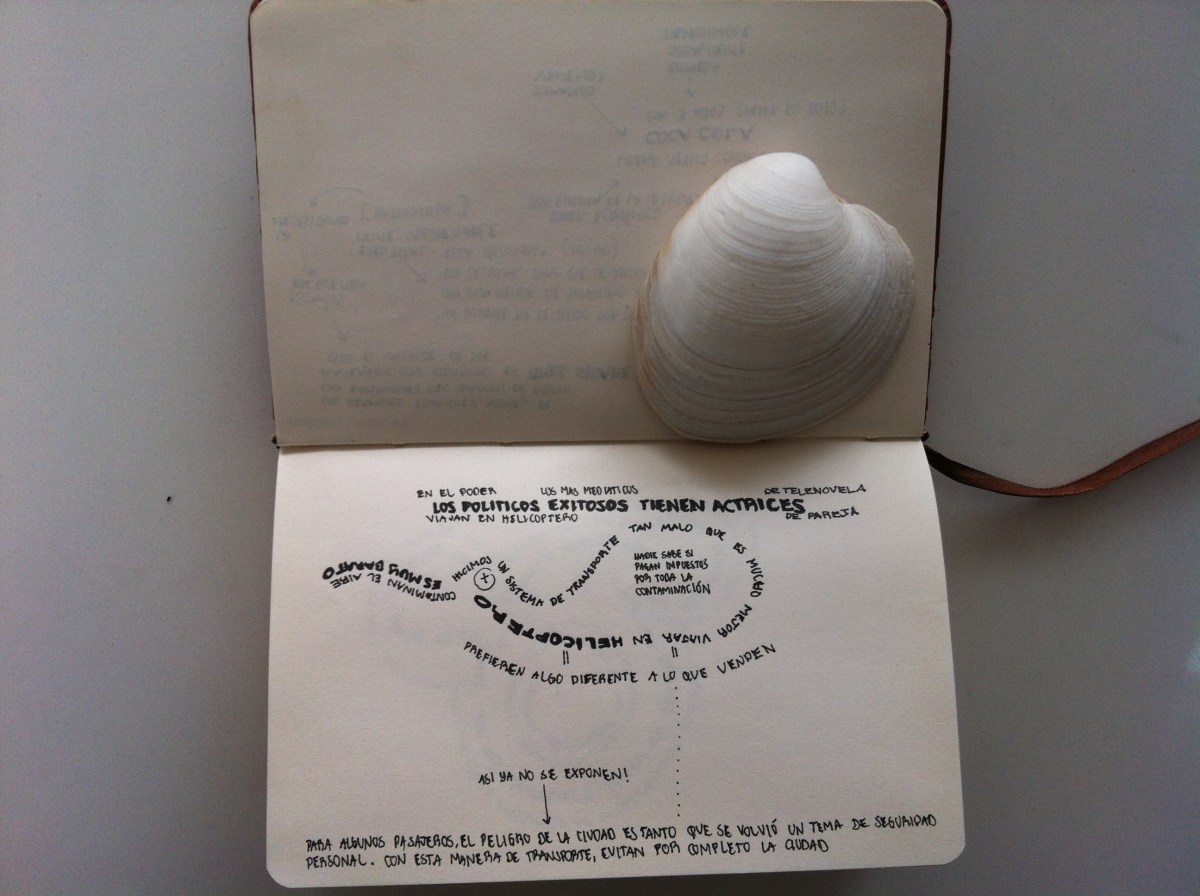 EN EL PODER LOS MAS MEDIATICOS DE TELENOVELA
LOS POLITICOS EXITOSOS TIENEN ACTRICES
VIAJAN EN HELICOPTERO DE PAREJA
HICIMOS UN SISTEMA DE TRANSPORTE TAN MALO QUE ES MUCHO MEJOR VIAJAR EN HELICOPTERO
+
ES MUY BARATO
CONTAMINAN EL AIRE
NADIE SABE SI
PAGAN IMPUESTOS
POR TODA LA
CONTAMINACIÓN
PREFIEREN ALGO DIFERENTE A LO QUE VENDEN
ASI YA NO SE EXPONEN!
PARA ALGUNOS PASAJEROS, EL PELIGRO DE LA CIUDAD ES TANTO QUE SE VOLVIÓ UN TEMA DE SEGURIDAD
PERSONAL. CON ESTA MANERA DE TRANSPORTE, EVITAN POR COMPLETO LA CIUDAD